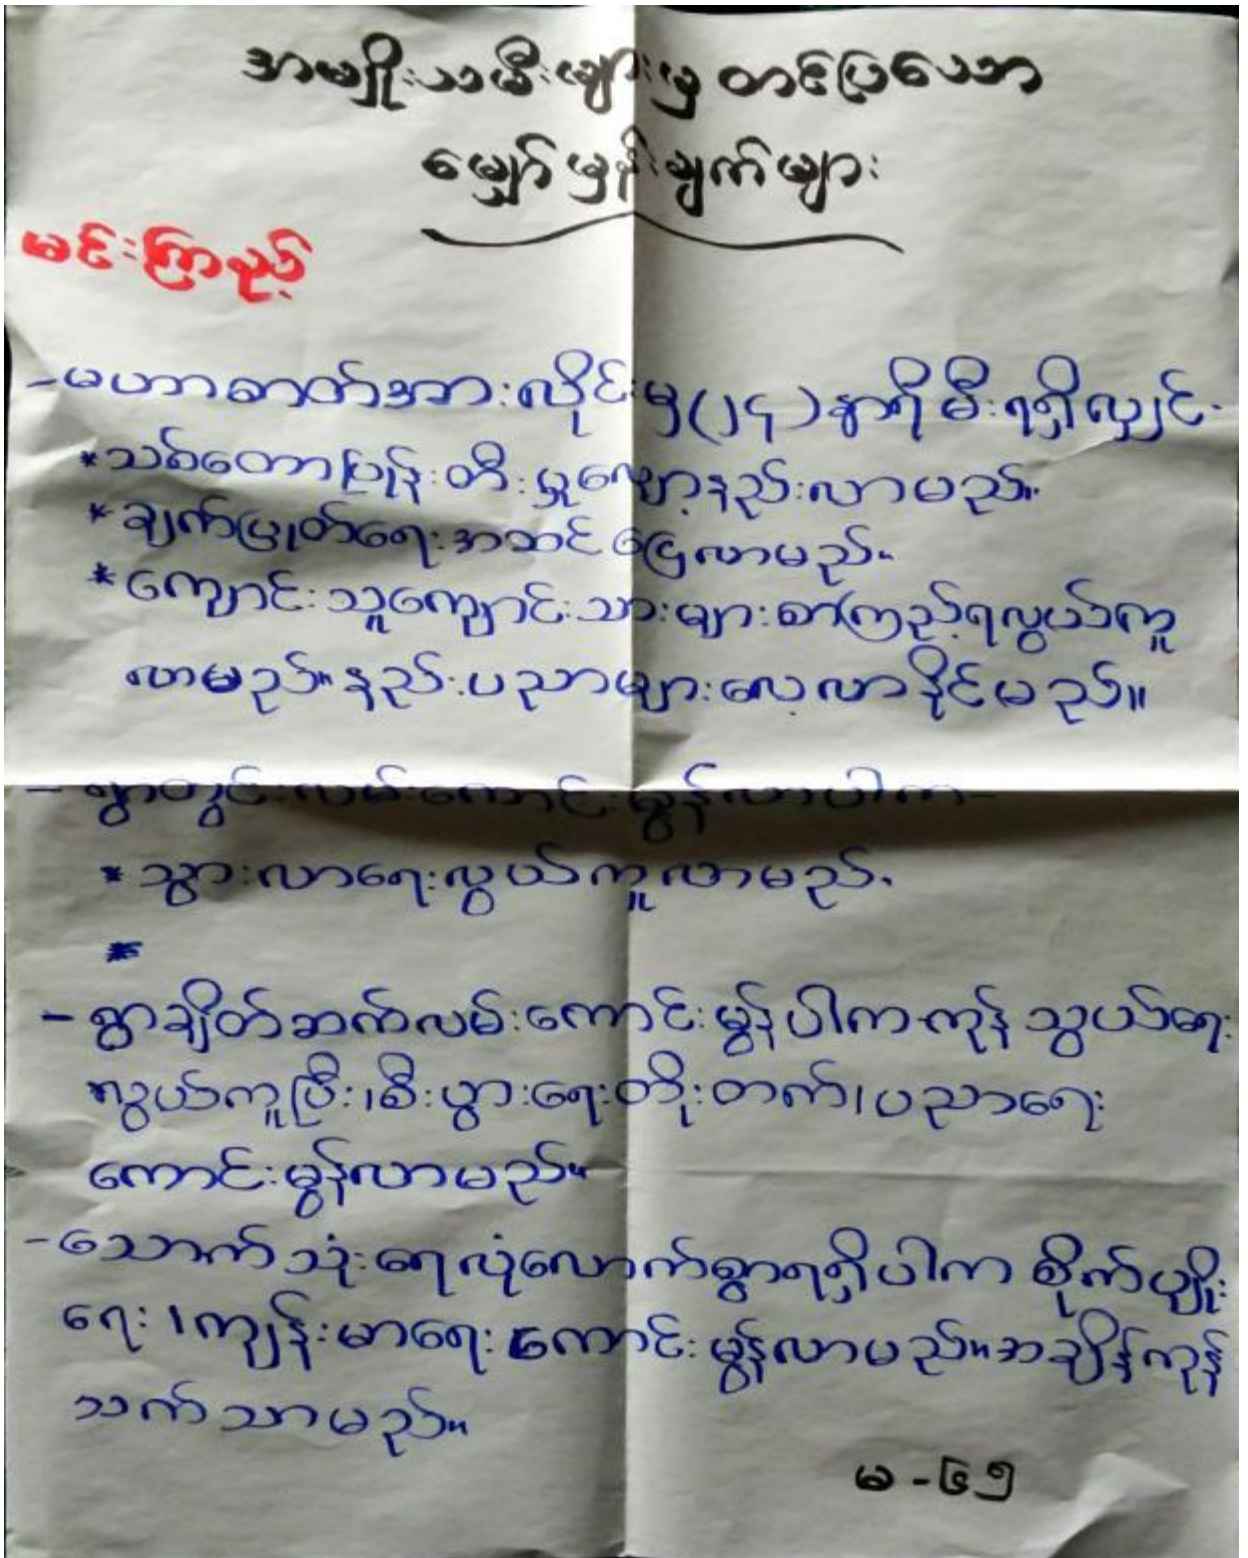 အမျိုးသမီးများမှ တင်ပြသော
မျှော်မှန်းချက်များ
မင်းကြာညှပ်
- မဟာဓာတ်အားလိုင်းမှ (၂၄) နာရီ မီးရရှိလျှင်-
* သစ်တောပြုန်းတီးမှုလျော့နည်းလာမည်။
* ချက်ပြုတ်ရေးအဆင်ပြေလာမည်။
* ကျောင်းသူကျောင်းသားများစာကြည့်ရလွယ်ကူ
လာမည်။ နည်းပညာများလေ့လာနိုင်မည်။
- ရွာတွင်းလမ်းကောင်းမွန်လာပါက-
* သွားလာရေးလွယ်ကူလာမည်.
*
- ရွာချိတ်ဆက်လမ်းကောင်းမွန်ပါက ကုန်သွယ်ရေး
လွယ်ကူပြီး၊ စီးပွားရေးတိုးတက်၊ ပညာရေး
ကောင်းမွန်လာမည်။
- သောက်သုံးရေလုံလောက်စွာရရှိပါက စိုက်ပျိုး
ရေး၊ ကျန်းမာရေး ကောင်းမွန်လာမည်။ အချိန်ကုန်
သက်သာမည်။
မ - ၄၅